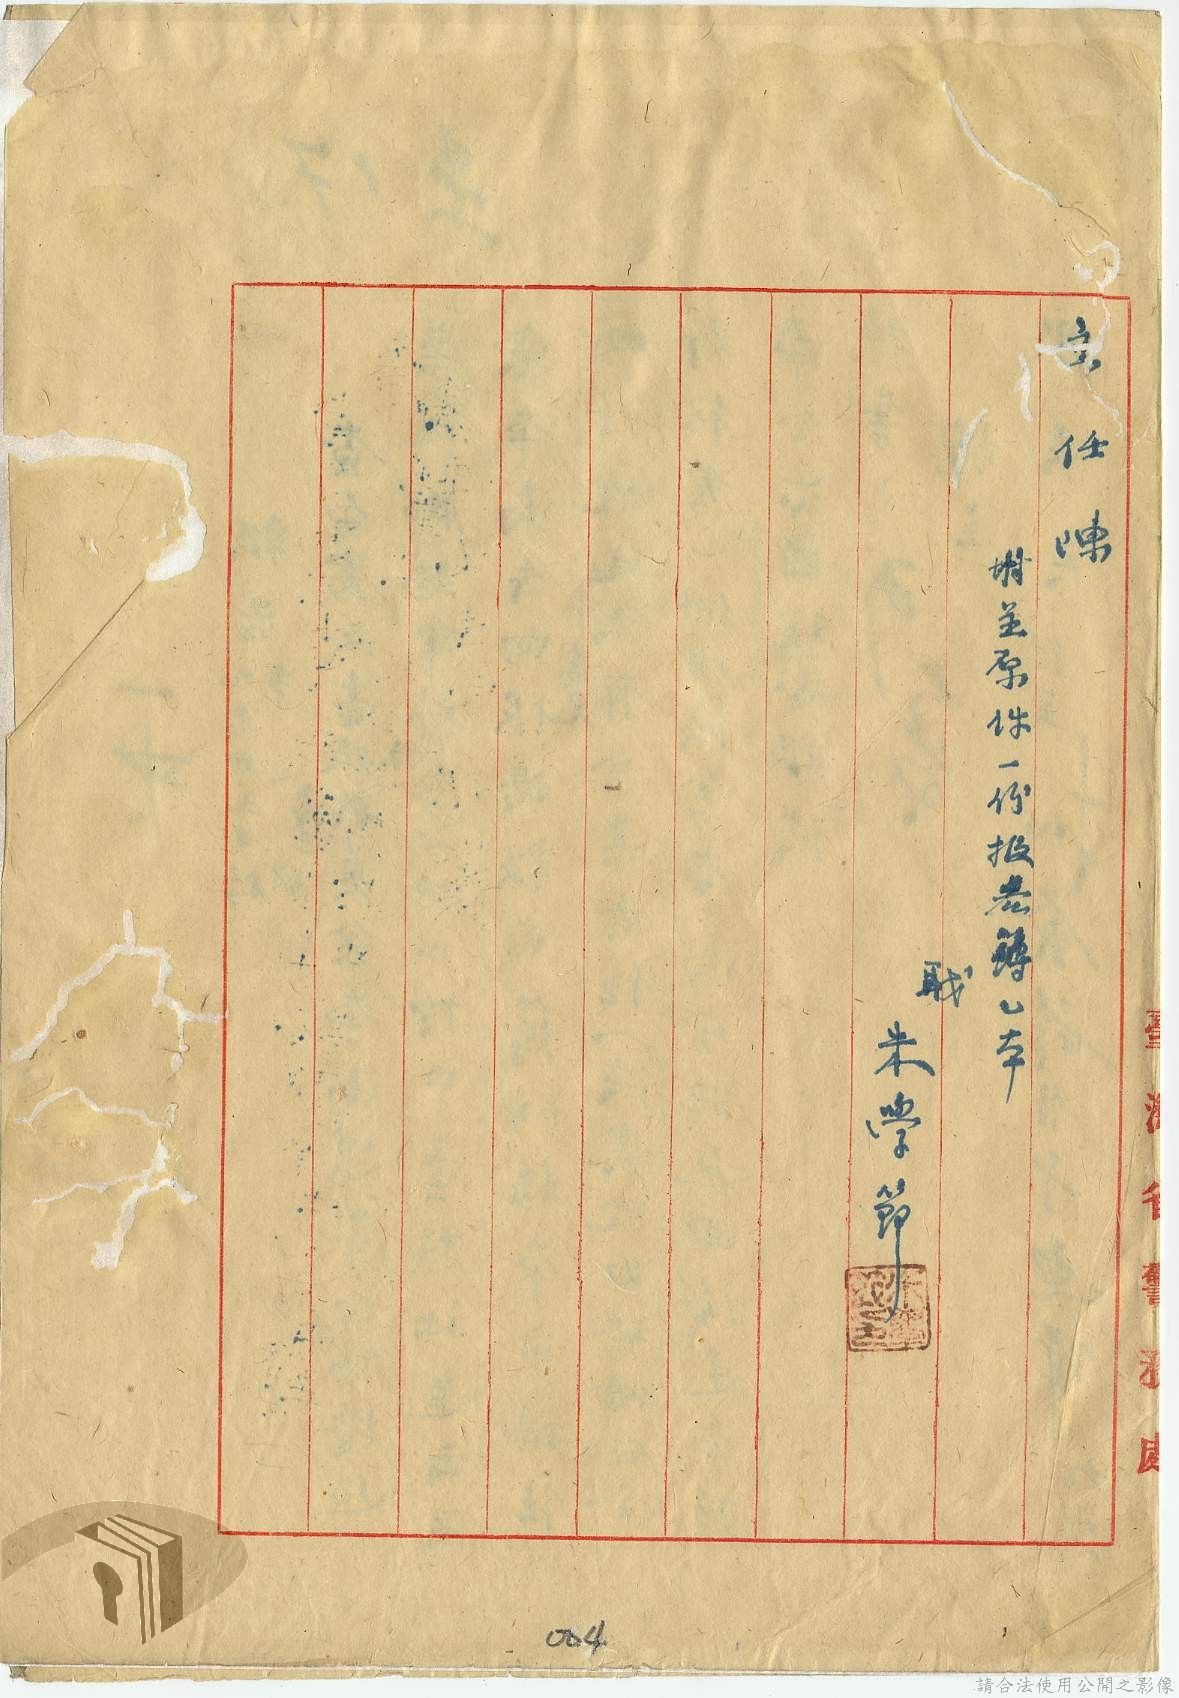 主任陳
坿呈原件一份報告簿乙本
职
朱學節
臺灣省警務處
004
請合法使用公開之影像